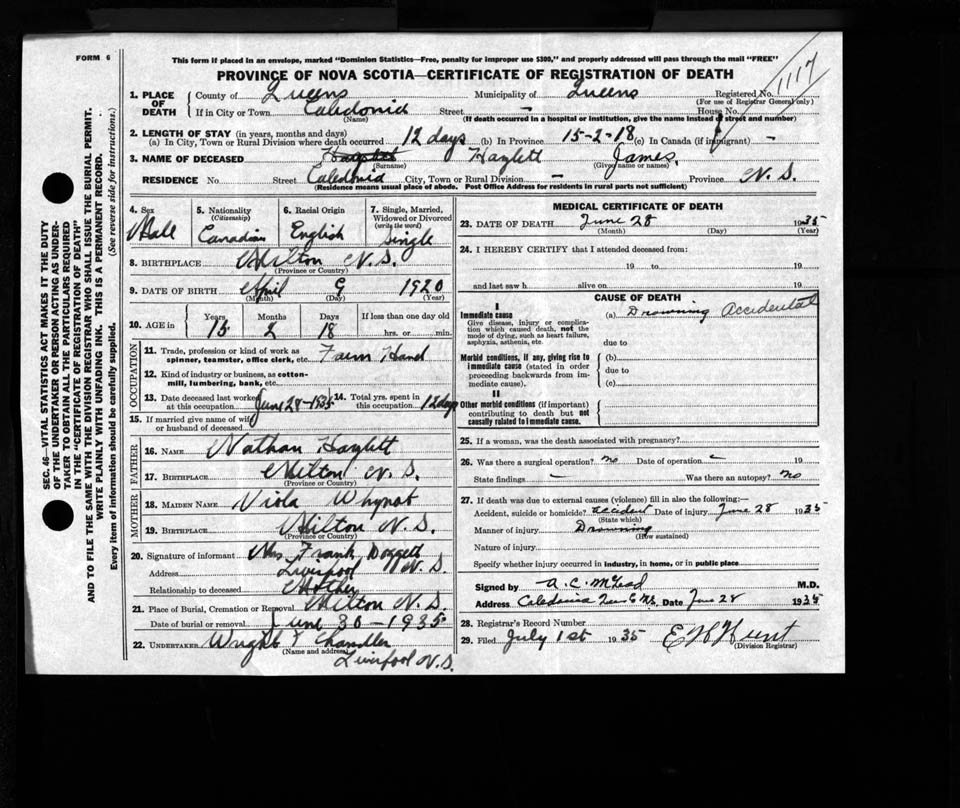 FORM 6
This form if placed in an envelope, marked "Dominion Statistics—Free, penalty for improper use $300," and properly addressed will pass through the mail "FREE"
PROVINCE OF NOVA SCOTIA—CERTIFICATE OF REGISTRATION OF DEATH
1117
1. PLACE OF DEATH County of Queens Municipality of Queens Registered No.
(For use of Registrar General only)
If in City or Town Caledonia Street - House No.
(Name) (If death occurred in a hospital or institution, give the name instead of street and number)
2. LENGTH OF STAY (in years, months and days)
(a) In City, Town or Rural Division where death occurred 12 days (b) In Province 15-2-18 (c) In Canada (if immigrant) -
3. NAME OF DECEASED Hazlett James.
(Surname) (Given name or names)
RESIDENCE No. Street Caledonia City, Town or Rural Division - Province N. S.
(Residence means usual place of abode. Post Office Address for residents in rural parts not sufficient)
4. Sex Male
5. Nationality (Citizenship) Canadian
6. Racial Origin English
7. Single, Married, Widowed or Divorced (write the word) single
8. BIRTHPLACE Milton N.S.
(Province or Country)
9. DATE OF BIRTH April 9 1920
(Month) (Day) (Year)
10. AGE in Years Months Days If less than one day old
15 2 18 hrs. or min.
OCCUPATION
11. Trade, profession or kind of work as spinner, teamster, office clerk, etc. Farm Hand
12. Kind of industry or business, as cotton-mill, lumbering, bank, etc.
13. Date deceased last worked at this occupation June 28-1935 14. Total yrs. spent in this occupation 12 days
15. If married give name of wife or husband of deceased
FATHER
16. NAME Nathan Hazlett
17. BIRTHPLACE Milton N.S.
(Province or Country)
MOTHER
18. MAIDEN NAME Viola Whynot
19. BIRTHPLACE Milton N.S.
(Province or Country)
20. Signature of informant Mrs Frank Doggett
Address Liverpool N.S.
Relationship to deceased Mother
21. Place of Burial, Cremation or Removal Milton N.S.
Date of burial or removal June 30-1935
22. UNDERTAKER Wright & Chandler
(Name and address) Liverpool N.S.
MEDICAL CERTIFICATE OF DEATH
23. DATE OF DEATH June 28 1935
(Month) (Day) (Year)
24. I HEREBY CERTIFY that I attended deceased from:
19 to 19
and last saw h alive on 19
CAUSE OF DEATH
I
Immediate cause (a) Drowning Accidental
Give disease, injury or complication which caused death, not the mode of dying, such as heart failure, asphyxia, asthenia, etc. due to
Morbid conditions, if any, giving rise to immediate cause (stated in order proceeding backwards from immediate cause). (b)
due to
(c)
II
Other morbid conditions (if important) contributing to death but not causally related to immediate cause.
25. If a woman, was the death associated with pregnancy?
26. Was there a surgical operation? no Date of operation - 19
State findings - Was there an autopsy? no
27. If death was due to external causes (violence) fill in also the following:—
Accident, suicide or homicide? accident Date of injury June 28 1935
(State which)
Manner of injury Drowning
(How sustained)
Nature of injury
Specify whether injury occurred in industry, in home, or in public place
Signed by A. C. McLeod M.D.
Address Caledonia Date June 28 1935
28. Registrar's Record Number
29. Filed July 1st 1935 E H Hunt
(Division Registrar)
SEC. 46—VITAL STATISTICS ACT MAKES IT THE DUTY
OF THE UNDERTAKER OR PERSON ACTING AS UNDER-
TAKER TO OBTAIN ALL THE PARTICULARS REQUIRED
IN THE "CERTIFICATE OF REGISTRATION OF DEATH"
AND TO FILE THE SAME WITH THE DIVISION REGISTRAR WHO SHALL ISSUE THE BURIAL PERMIT.
WRITE PLAINLY WITH UNFADING INK. THIS IS A PERMANENT RECORD.
Every item of information should be carefully supplied. (See reverse side for instructions.)